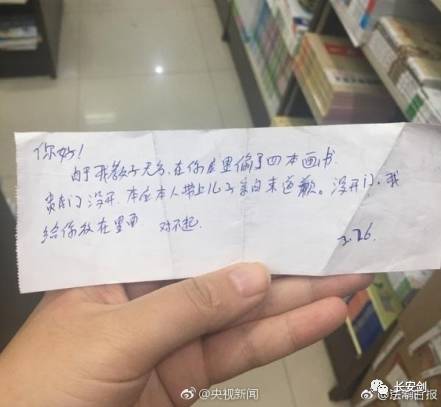 你好！
由于我教子无方，在你店里偷了四本画书
贵门没开，本应本人带上儿子亲自来道歉。没开门，我
给你放在里面 对不起.
2.26.
@央视新闻
长安剑
@法制日报